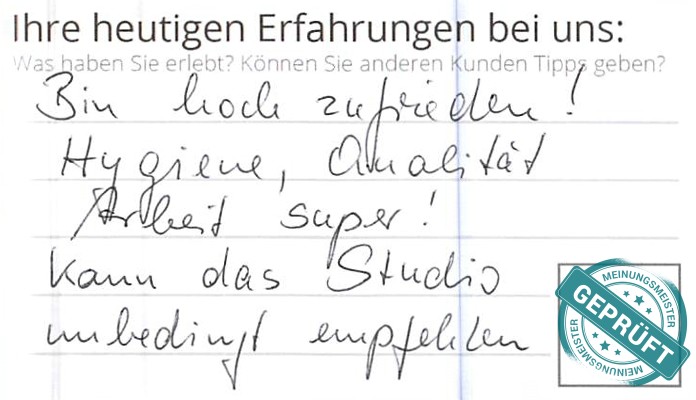 Ihre heutigen Erfahrungen bei uns:
Was haben Sie erlebt? Können Sie anderen Kunden Tipps geben?
Bin hoch zufrieden!
Hygiene, Qualität
Arbeit super!
Kann das Studio
unbedingt empfehlen
MEINUNGSMEISTER
GEPRÜFT
MEINUNGSMEISTER